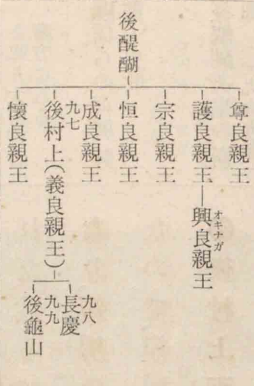 後醍醐
尊良親王
護良親王
興良親王
オキナガ
宗良親王
恒良親王
成良親王
九七
後村上(義良親王)
九八
長慶
九九
後龜山
懷良親王